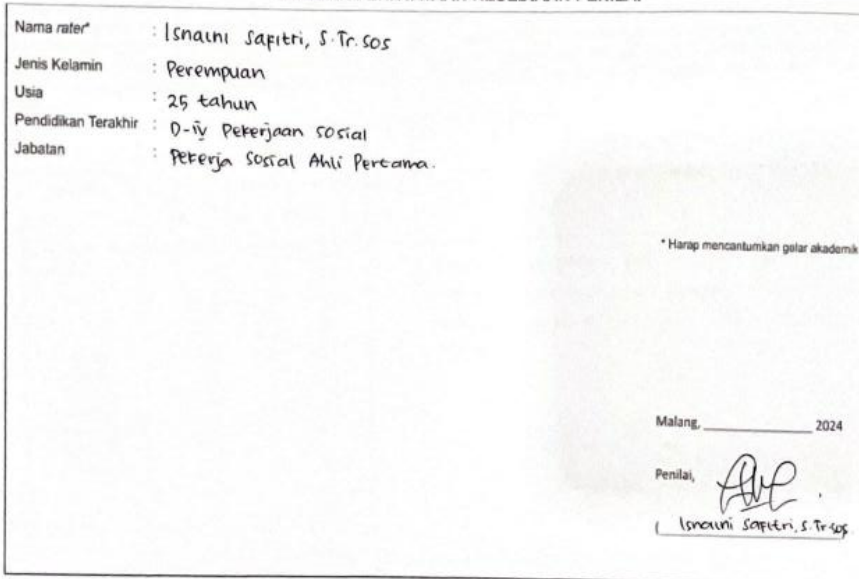 Nama rater* : Isnaini Safitri, S.Tr.Sos
Jenis Kelamin : Perempuan
Usia : 25 tahun
Pendidikan Terakhir : D-iv Pekerjaan sosial
Jabatan : Pekerja Sosial Ahli Pertama.
* Harap mencantumkan gelar akademik
Malang, ____________ 2024
Penilai,
( Isnaini Safitri, S.Tr.Sos.